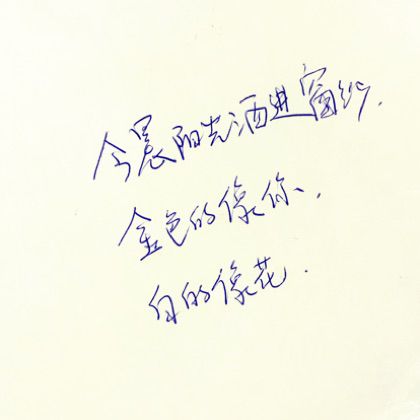 今晨阳光洒进窗纱.
金色的像你、
白的像花.